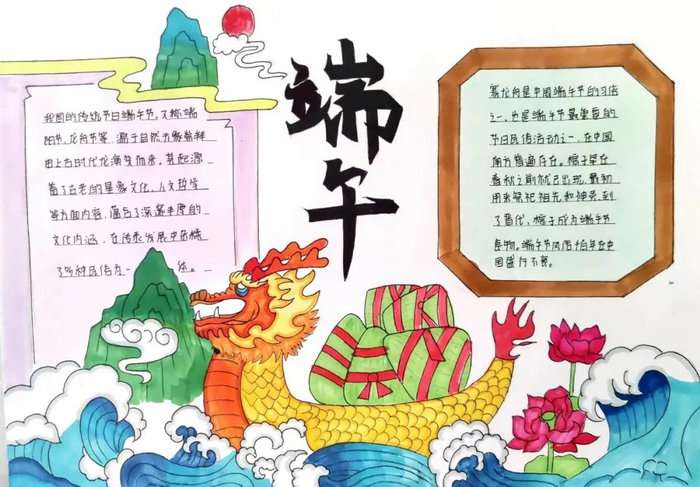 端午
我国的传统节日端午节,又称端
阳节,龙舟节等,源于自然天象崇拜
由上古时代龙演变而来,其起源
蓄了古老的星象文化,人文哲学
等方面内容,蕴含了深邃丰厚的
文化内涵,在传承发展中杂糅
了多种民俗为一体。
赛龙舟是中国端午节的习俗
之一,也是端午节最重要的
节日民俗活动之一,在中国
南方普遍存在。粽子早在
春秋之前就已出现,最初
用来祭祀祖先和神灵,到
了晋代,粽子成为端午节
食物。端午节风俗千百年在中
国盛行不衰。